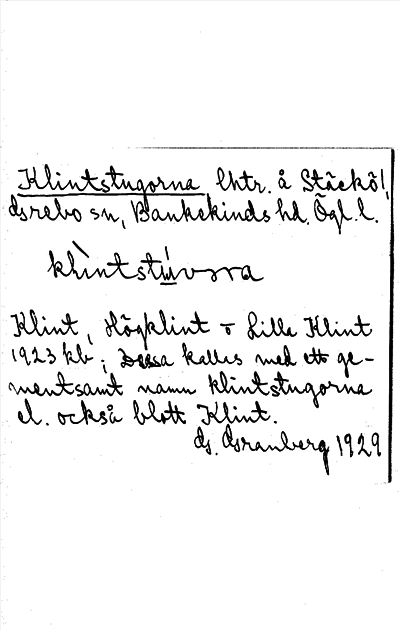 Klintstugorna, lhtr. å Stäckö!,
Grebo sn, Bankekinds hd. Ögl. l.
klìntstúvorna
Klint, Högklint o Lilla Klint
1923 kb; Dessa kallas med ett ge-
mentsamt namn klintstugorna
el. också blott Klint.
G. Granberg 1929